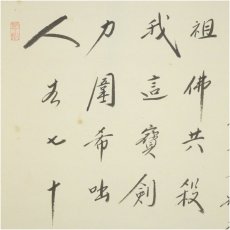 人生七十
力圍希咄
我這寶劍
祖佛共殺